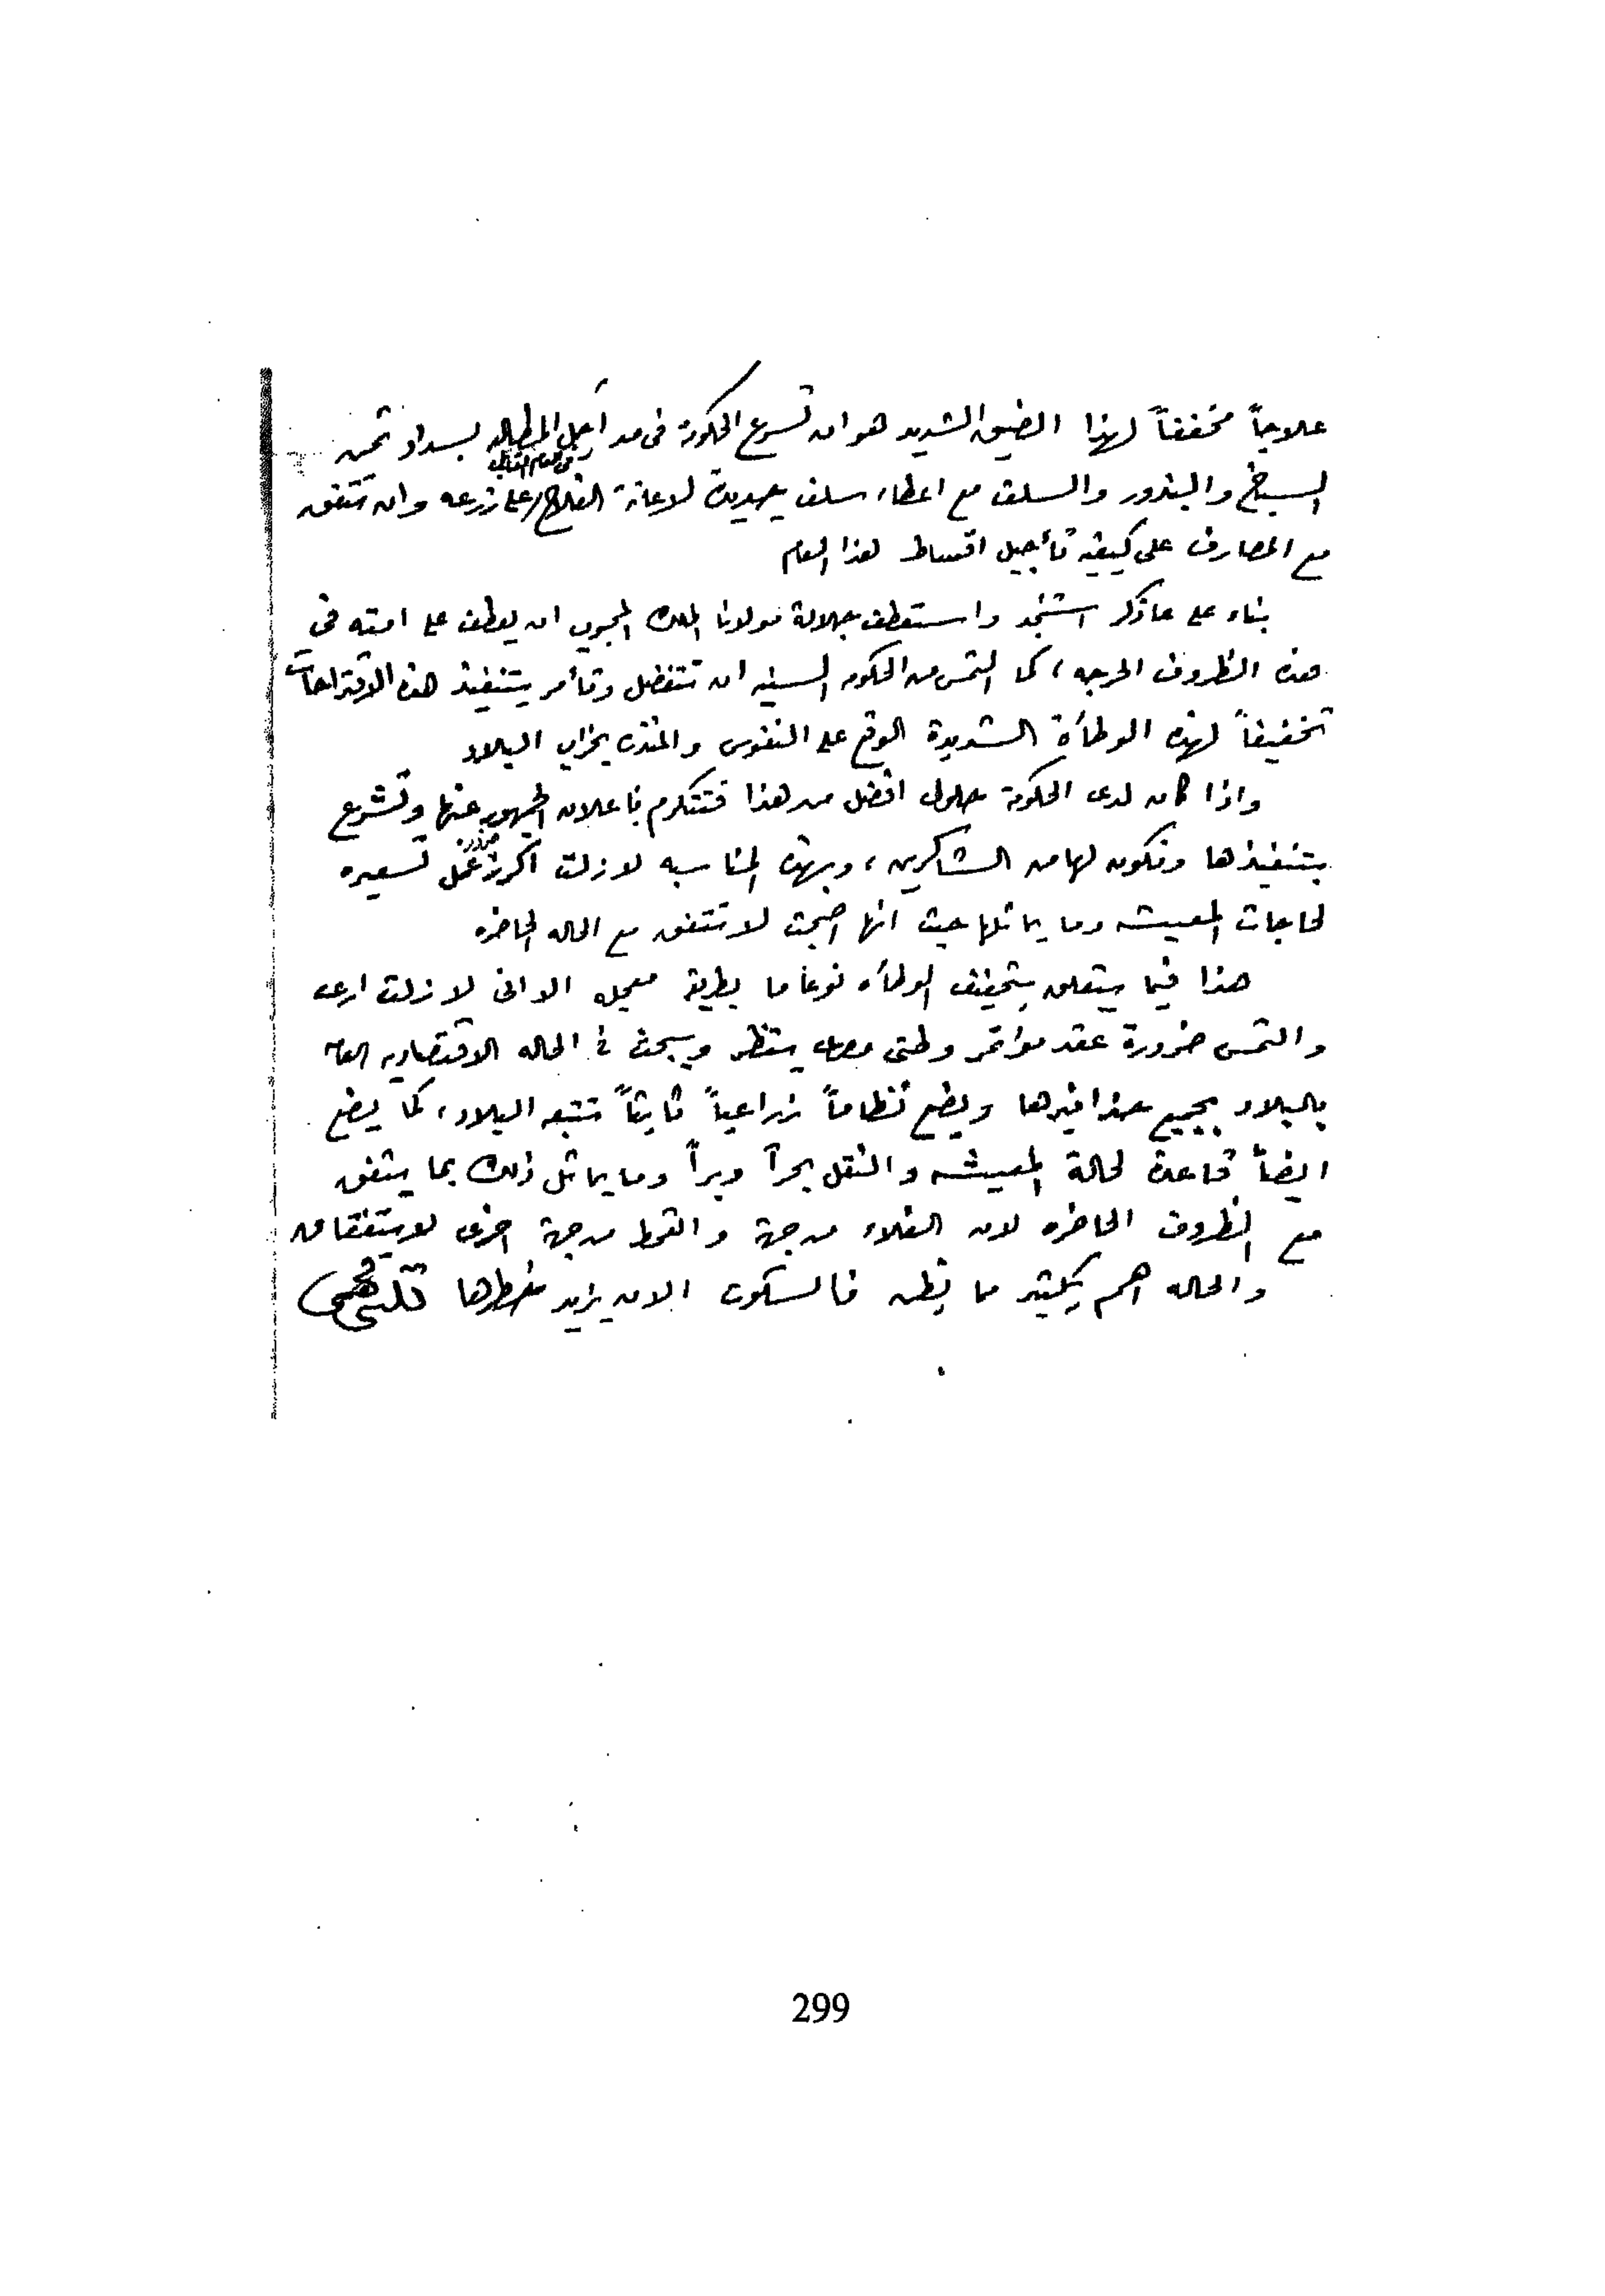 علاجاً مخففاً لهذا الضيق الشديد هو ان تسرع الحكومة فى مد أجل المطالبه بسداد ثمن
السباخ والبذور والسلف مع اعطاء سلف جديدة لاعانة الفلاح على زرعه وان تتفق
فى العام القابل
مع المصارف على كيفية تأجيل اقساط هذا العام
بناء على ماذكر استنجد واستعطف جلالة مولانا الملك المحبوب ان يعطف على امته في
هذه الظروف الحرجه ، كما التمس من الحكومه السنيه ان تتفضل وتأمر بتنفيذ هذه الاقتراحات
تخفيفاً لهذه الوطأة الشديدة الوقع على النفوس والمنذره بخراب البلاد
واذا كان لدى الحكومة حلول افضل من هذا فتتكرم باعلان الجمهور عنها وتشرع
بتنفيذها ونكون لها من الشاكرين ، وبهذه المناسبه لازلت اكرر ضرورة عمل تسعيره
لحاجات المعيشه وما يماثلها حيث انها اصبحت لا تتفق مع الحاله الحاضره
هذا فيما يتعلق بتخفيف الوطأه نوعاً ما بطريقة معجله الا انى لازلت ارى
والتمس ضرورة عقد مؤتمر وطنى ينظر ويبحث فى الحاله الاقتصاديه العامة
بالبلاد بجميع حذافيرها ويضع نظاماً زراعياً ثابتاً تتبعه البلاد ، كما يضع
ايضاً قاعدة لحالة المعيشه والنقل بحراً وبراً وما يماثل ذلك بما يتفق
مع الظروف الحاضره لان الغلاء من جهة والقحط من جهة اخرى لا يتفقان
والحاله اهم بكثير مما يظن فالسكوت الان يزيد خطرها قلينى فهمى
299